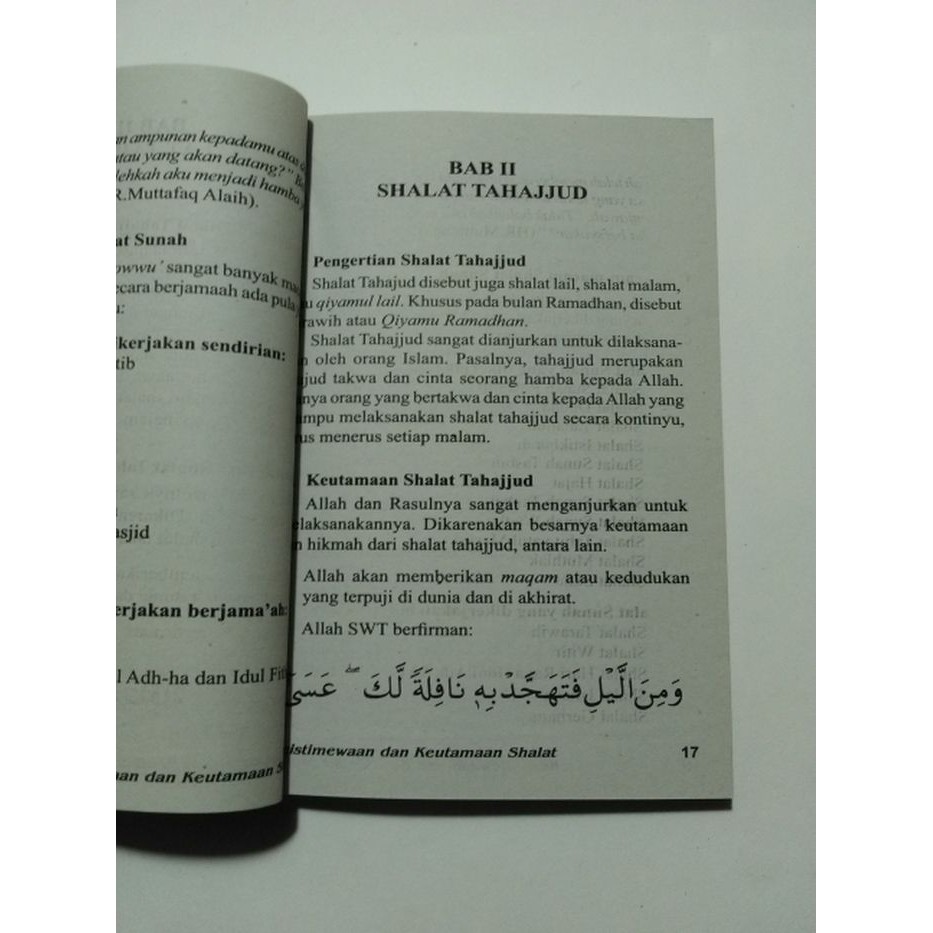 ampunan kepadamu atas
yang akan datang?"
aku menjadi hamba
Muttafaq Alaih).
Sunah
sangat banyak
berjamaah ada pula
sendirian:
berjama'ah:
Adh-ha dan Idul
dan Keutamaan
BAB II
SHALAT TAHAJJUD
Pengertian Shalat Tahajjud
Shalat Tahajud disebut juga shalat lail, shalat malam,
qiyamul lail. Khusus pada bulan Ramadhan, disebut
atau Qiyamu Ramadhan.
Shalat Tahajjud sangat dianjurkan untuk dilaksana-
oleh orang Islam. Pasalnya, tahajjud merupakan
takwa dan cinta seorang hamba kepada Allah.
orang yang bertakwa dan cinta kepada Allah yang
melaksanakan shalat tahajjud secara kontinyu,
menerus setiap malam.
Keutamaan Shalat Tahajjud
Allah dan Rasulnya sangat menganjurkan untuk
Dikarenakan besarnya keutamaan
hikmah dari shalat tahajjud, antara lain.
Allah akan memberikan maqam atau kedudukan
yang terpuji di dunia dan di akhirat.
Allah SWT berfirman:
وَمِنَ الَّيْلِ فَتَهَجَّدْ بِهٖ نَافِلَةً لَّكَ ۖ عَسٰٓى
dan Keutamaan Shalat 17